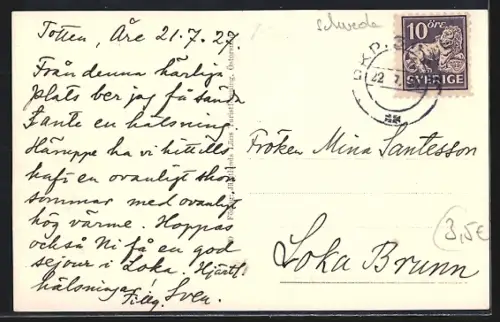 Totten, Åre 21.7.27.
Från denna härliga
plats ber jag få sända
Tante en hälsning.
Häruppe ha vi hittills
haft en ovanligt skön
sommar med ovanligt
hög värme. Hoppas
också Ni få en god
sejour i Loka. Hjärtl.
hälsningar!
Tillg. Sven.
Schweden
10 ÖRE
SVERIGE
22 7
Fröken Mina Santesson
Loka Brunn
3,5€